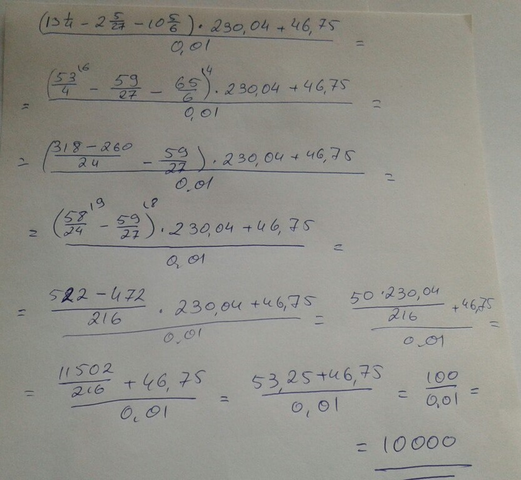 ((13 1/4 - 2 5/27 - 10 5/6) · 230,04 + 46,75)/0,01 =
= ((53/4 \6 - 59/27 - 65/6) \4 · 230,04 + 46,75)/0,01 =
= (((318 - 260)/24 - 59/27) · 230,04 + 46,75)/0,01 =
= ((58/24 \9 - 59/27 \8) · 230,04 + 46,75)/0,01 =
= ((522 - 472)/216 · 230,04 + 46,75)/0,01 = ((50 · 230,04)/216 + 46,75)/0,01 =
= (11502/216 + 46,75)/0,01 = (53,25 + 46,75)/0,01 = 100/0,01 =
= 10000